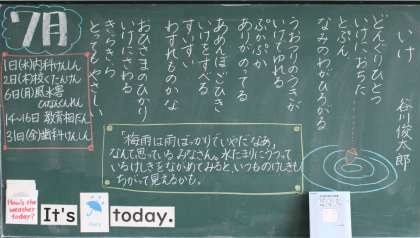 7月
1日(水)内科けんしん
2日(木)校くたんけん
6日(月)風水害
ひなんくんれん
14〜16日 教育相だん
31日(金)歯科けんしん
いけ
谷川俊太郎
どんぐりひとつ
いけにおちた
とぷん
なみのわがひろがる
うおつりのつきが
いけでゆれる
ぷかぷか
いけのって
あめんぼごひき
いけをすべる
すいすい
わすれものかな
おひさまのひかり
いけにさわる
きらきら
とってもやさしい
「梅雨は雨ばっかりでいやだなあ」
なんて思っているみなさん。水たまりにうつって
いるけしきをながめてみると、いつものけしきも
ちがって見えるかも。
How's the
weather
today?
It's
today.